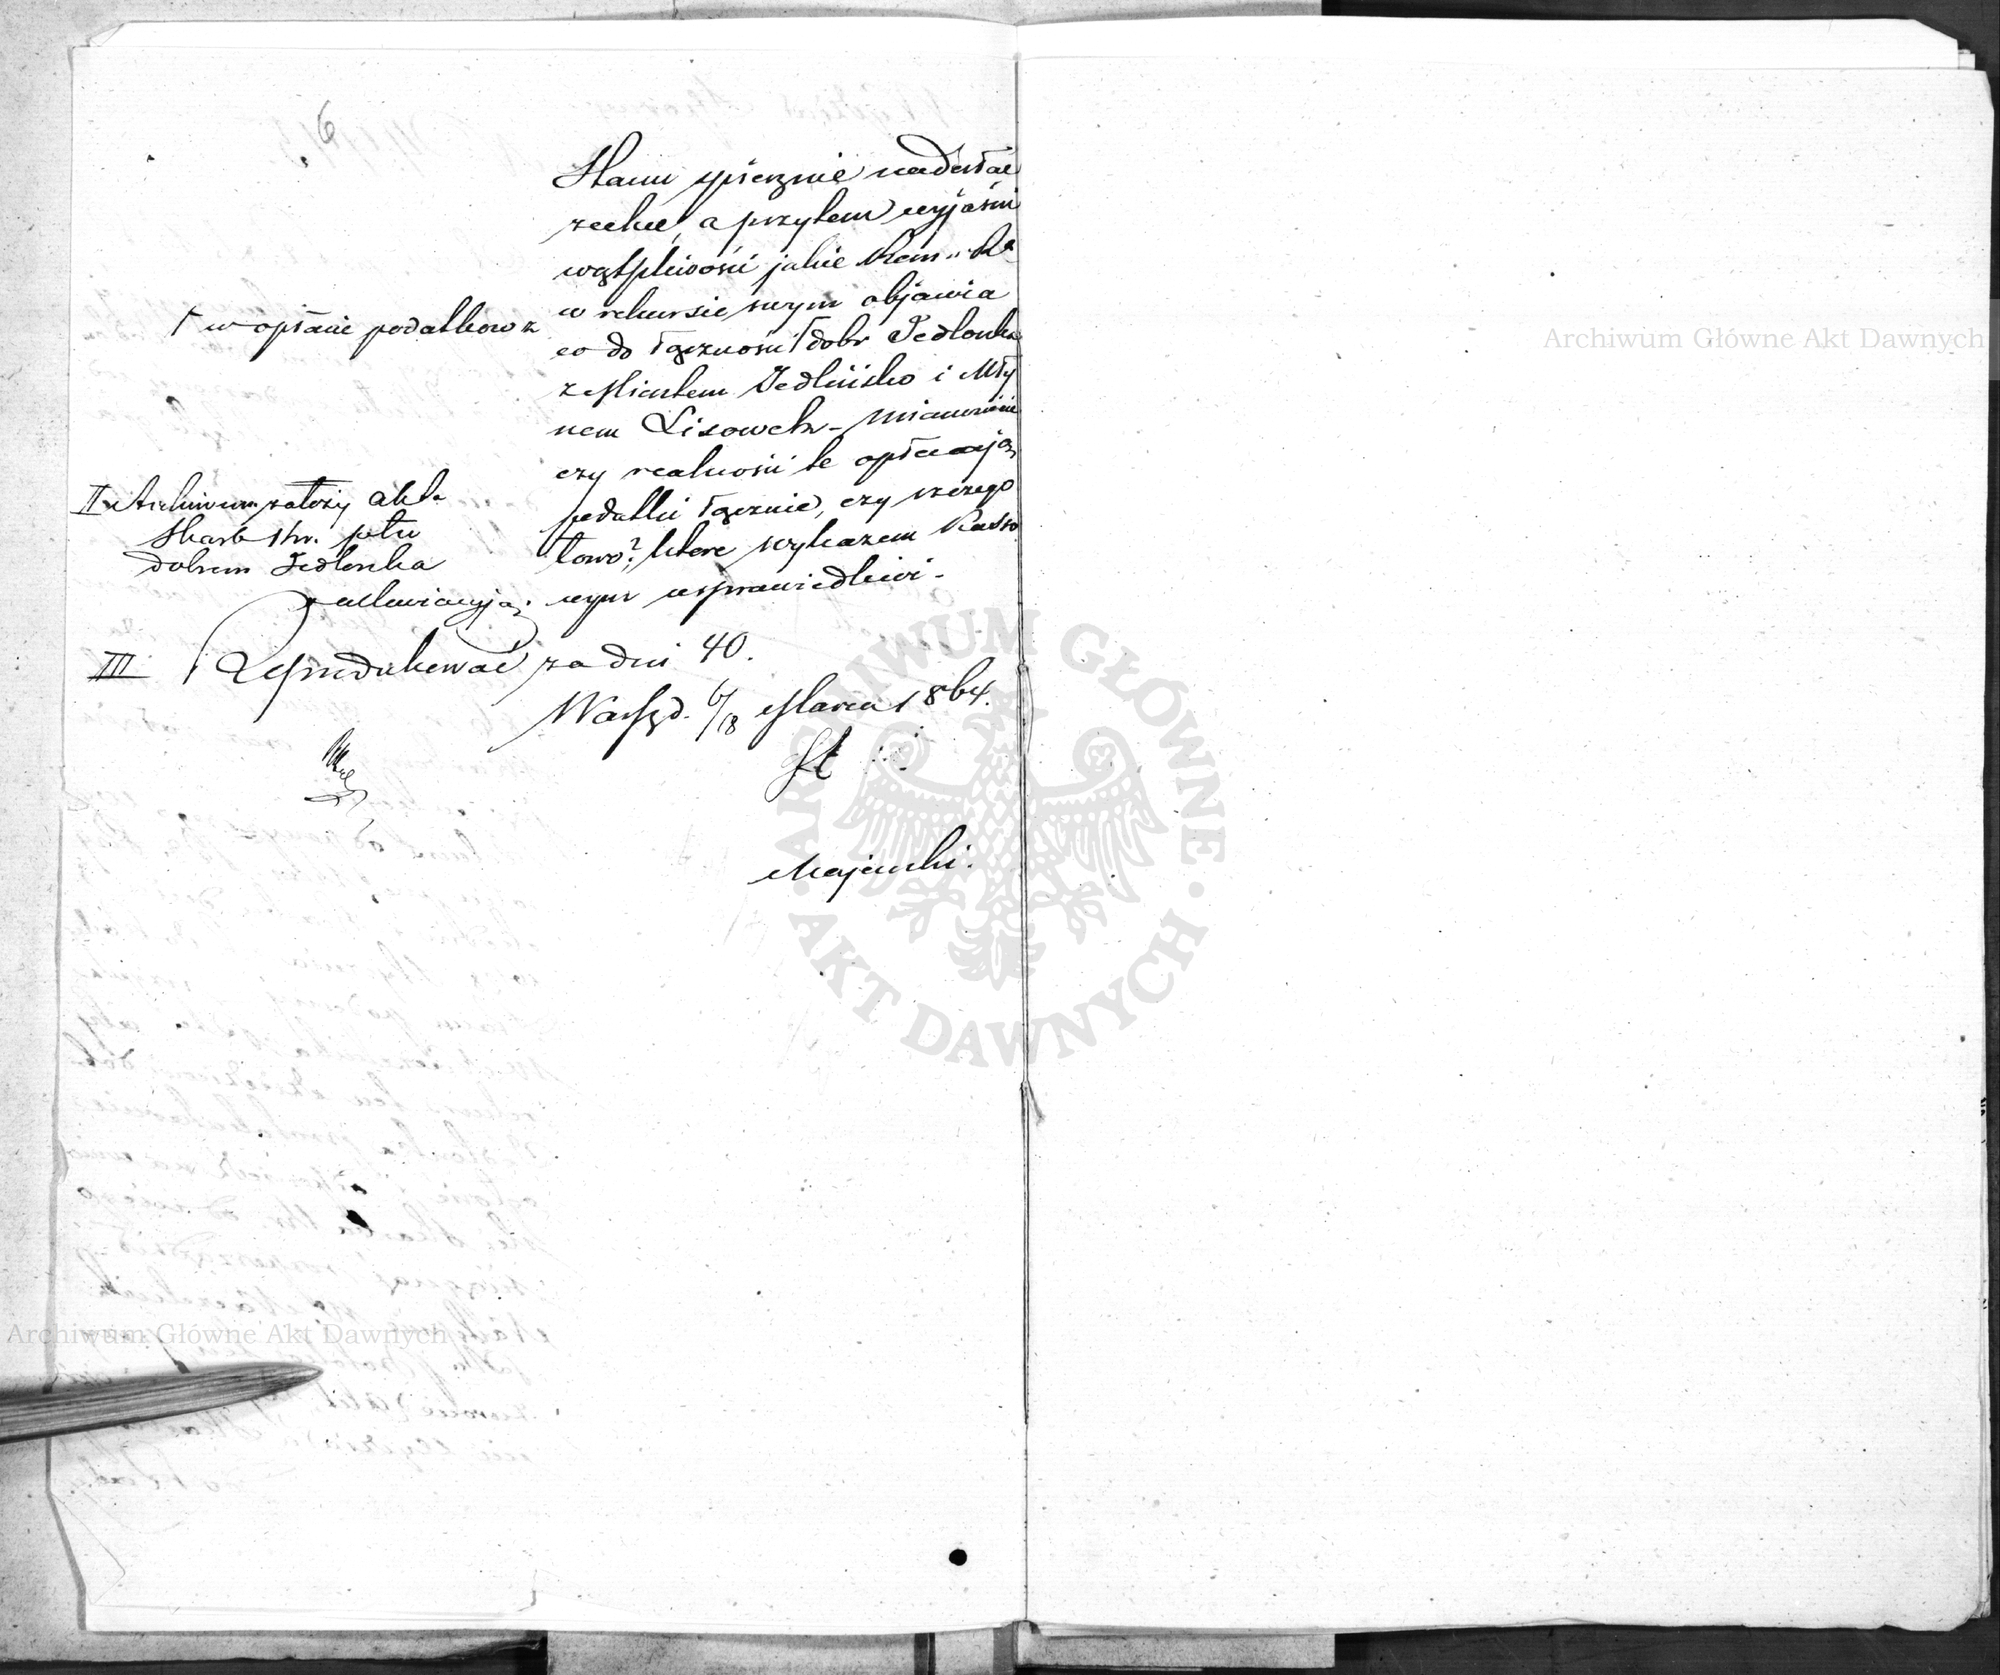 6
Stanu spiesznie nadesłać
zechce, a przytem wyjaśni
wątpliwości jakie Kom: Rz
w rekursie swym objawia
co do łączności Γ dobr Jedlonka
z Miastem Jedlińsko i Mły
nem Lisowek - mianowicie
czy realności te opłacają
podatki łącznie, czy szczegó
łowo? które wykazem Kasso
wym usprawiedliwi -
Γ w opłacie podatkow z
II Archiwum założy akta
Skarb. stw. ptu
dobrom Jedlonka
zaklawiacyją.
III Reprodukować za dni 40.
Warsz d. 6/18 Marca 1864.
St
Majewski.
Archiwum Główne Akt Dawnych
Archiwum Główne Akt Dawnych
ARCHIWUM GŁÓWNE · AKT DAWNYCH ·